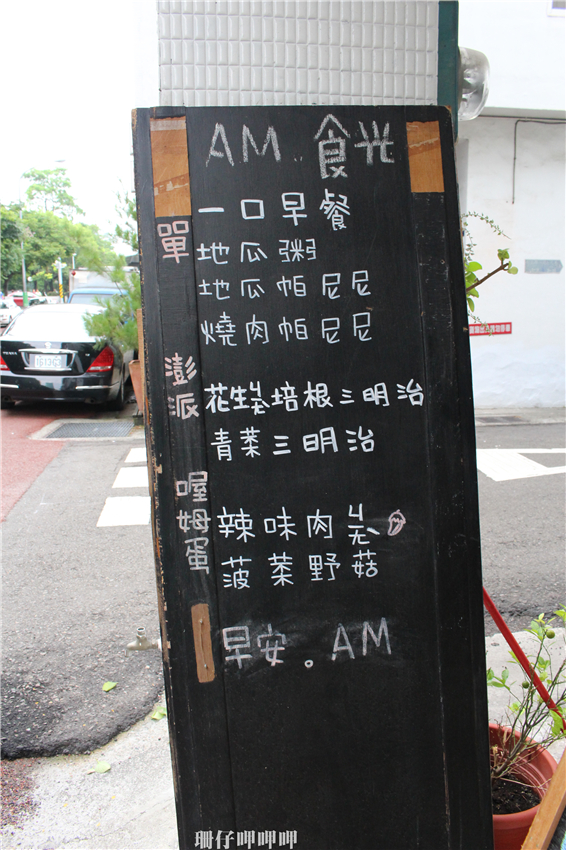 AM 食光
單 一口早餐
地瓜粥
地瓜帕尼尼
燒肉帕尼尼
澎派 花生培根三明治
青菜三明治
喔姆蛋 辣味肉
菠菜野菇
早安。AM
珊仔呷呷呷